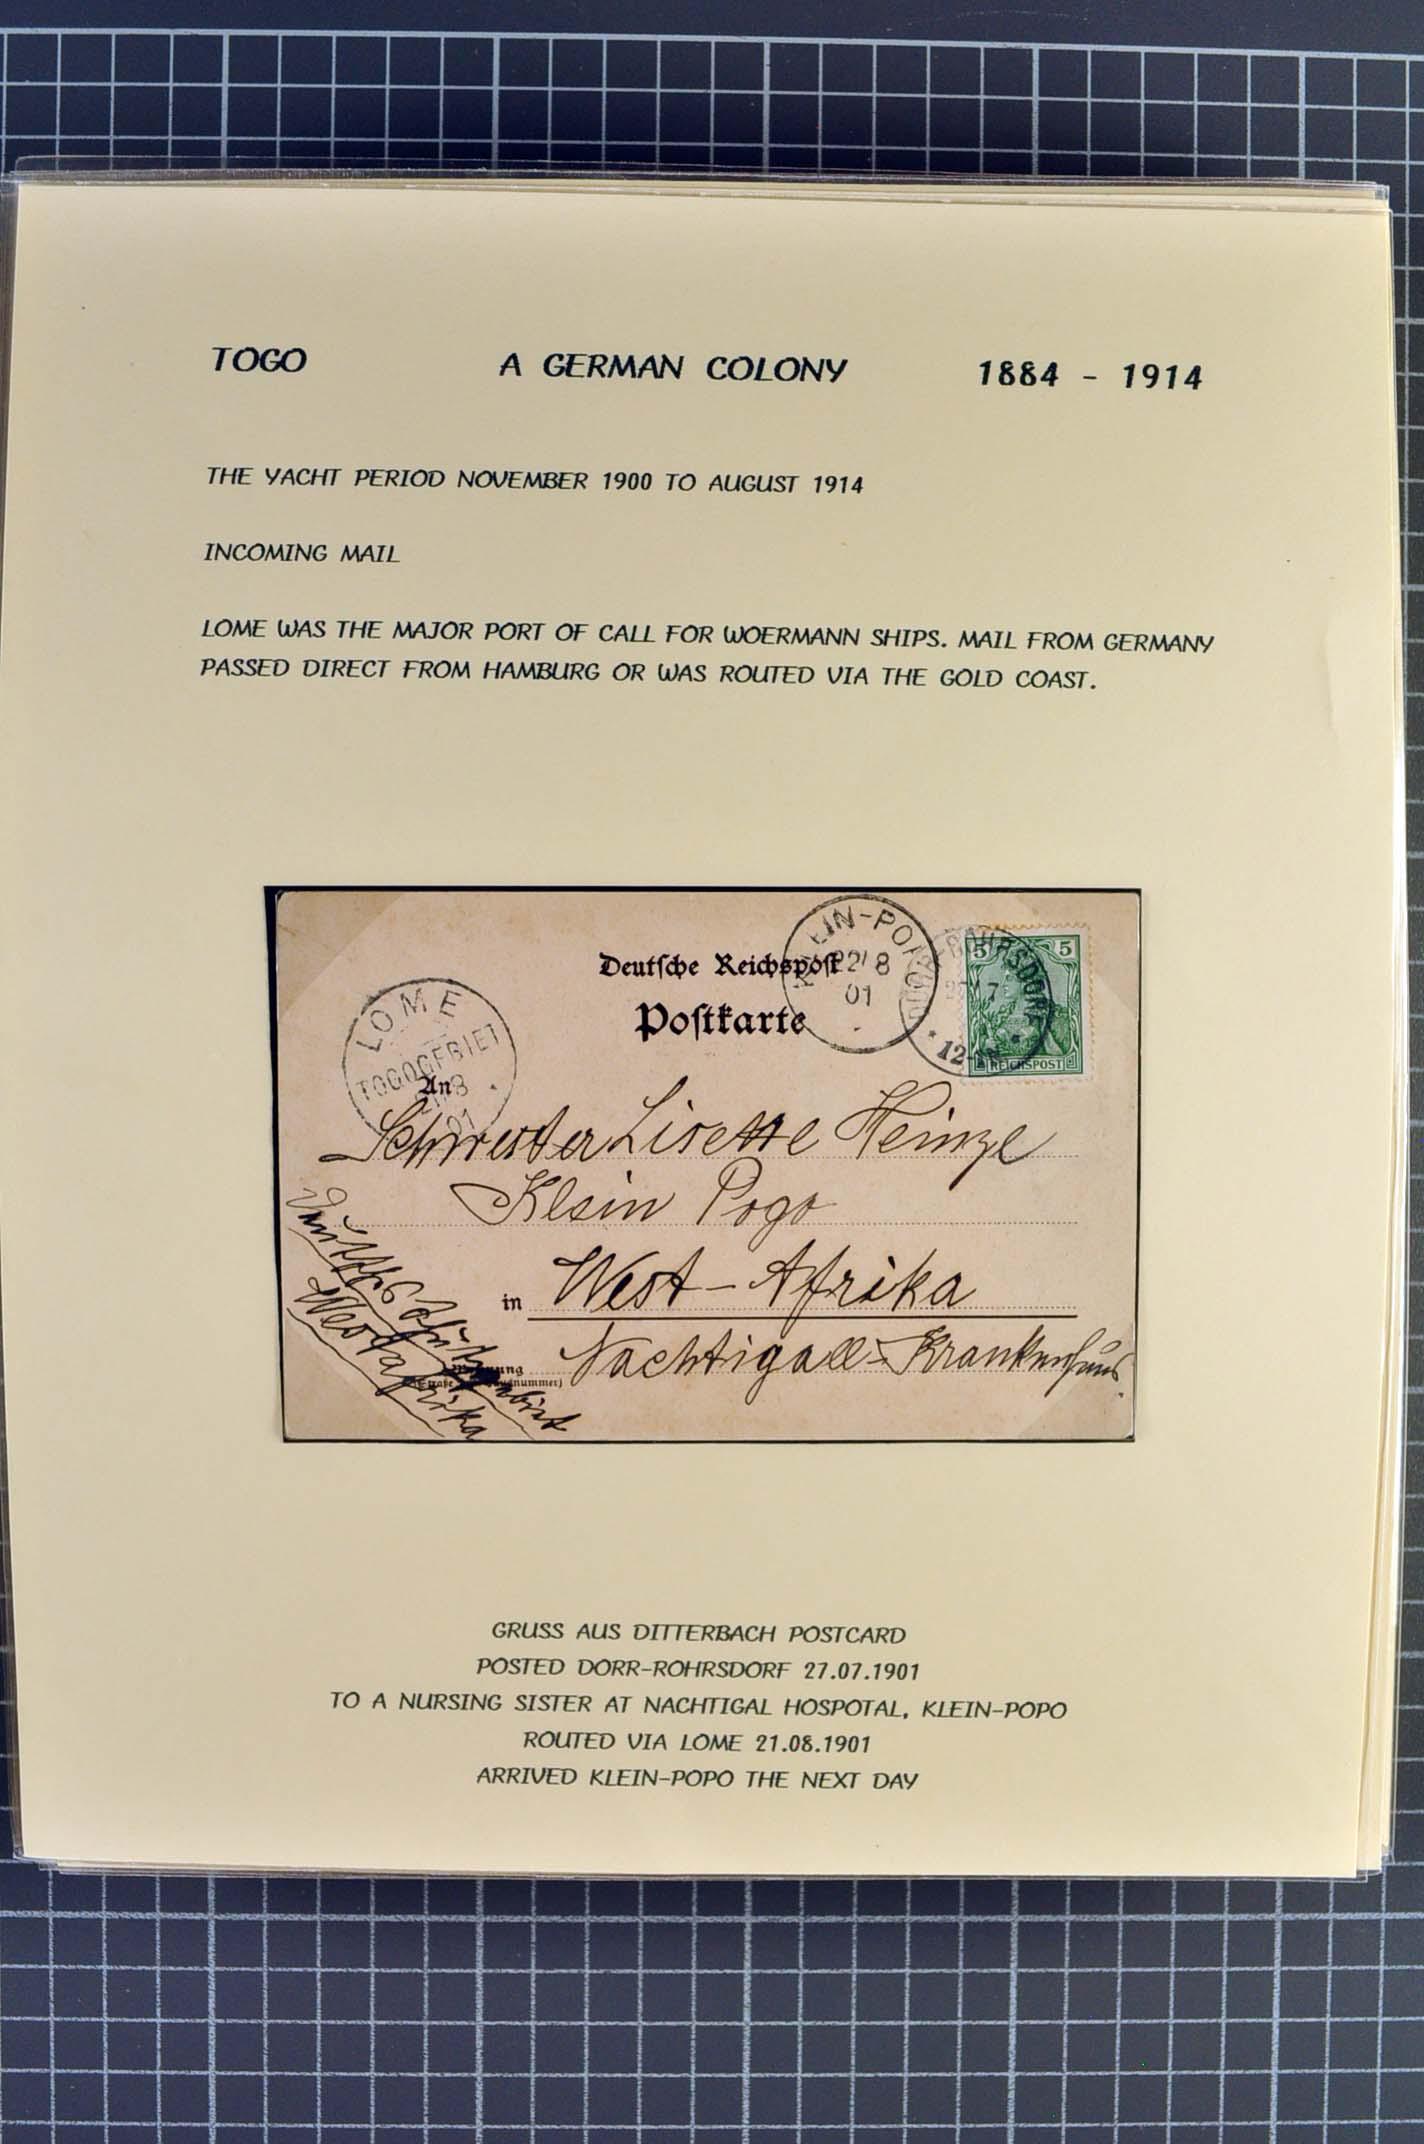 TOGO A GERMAN COLONY 1884 - 1914
THE YACHT PERIOD NOVEMBER 1900 TO AUGUST 1914
INCOMING MAIL
LOME WAS THE MAJOR PORT OF CALL FOR WOERMANN SHIPS. MAIL FROM GERMANY
PASSED DIRECT FROM HAMBURG OR WAS ROUTED VIA THE GOLD COAST.
KLEIN-POPO
22/8
01
DÜRR-RÖHRSDORF
27/7
* 12- *
5 5
REICHSPOST
Deutsche Reichspost
Postkarte
LOME
TOGOGEBIET
21/8
01
An
Schwester Lisette Heinze
Klein Pogo
in West-Afrika
Nachtigall-Krankenhaus.
Wohnung
(Straße Hausnummer)
Deutsches Schutzgebiet
Westafrika
GRUSS AUS DITTERBACH POSTCARD
POSTED DORR-ROHRSDORF 27.07.1901
TO A NURSING SISTER AT NACHTIGAL HOSPOTAL, KLEIN-POPO
ROUTED VIA LOME 21.08.1901
ARRIVED KLEIN-POPO THE NEXT DAY